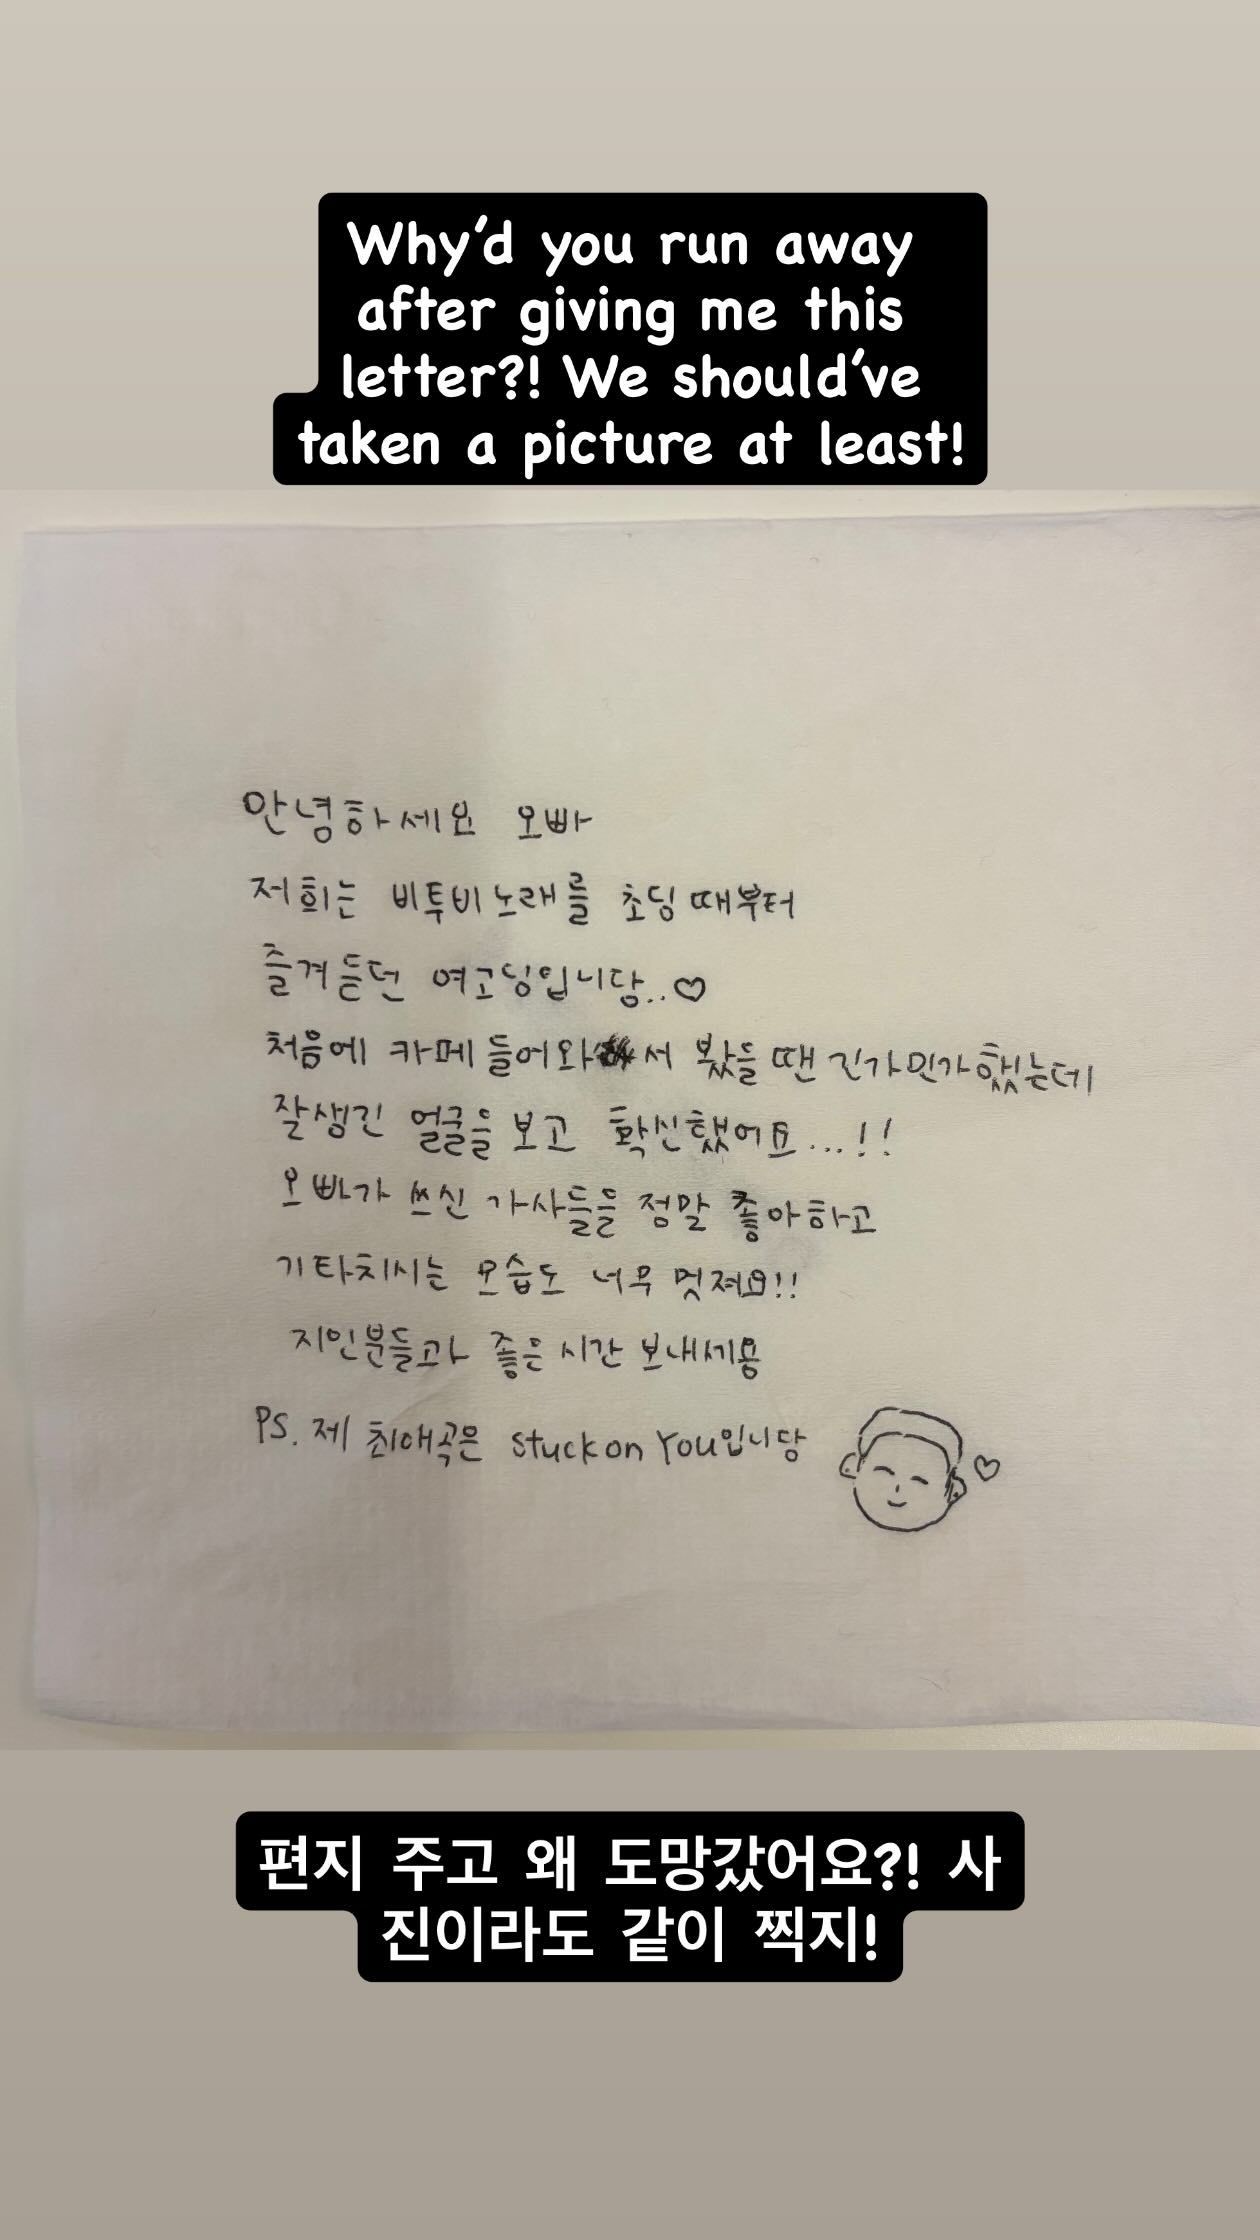 Why'd you run away
after giving me this
letter?! We should've
taken a picture at least!
안녕하세요 오빠
저희는 비투비 노래를 초딩 때부터
즐겨 듣던 여고딩입니당..♡
처음에 카페 들어와서 봤을 땐 긴가민가 했는데
잘생긴 얼굴을 보고 확신했어요...!!
오빠가 쓰신 가사들을 정말 좋아하고
기타치시는 모습도 너무 멋져요!!
지인분들과 좋은 시간 보내세용
PS. 제 최애곡은 Stuck on You입니당
편지 주고 왜 도망갔어요?! 사
진이라도 같이 찍지!